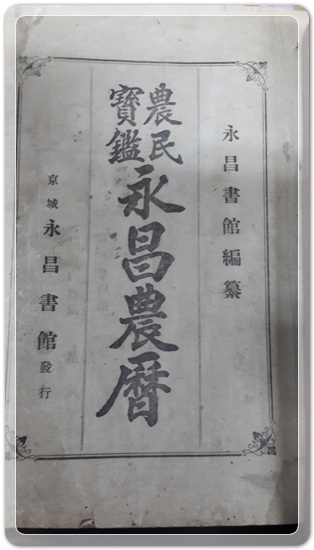 永昌書館編纂
農民
寶鑑
永昌農曆
京城 永昌書館 發行